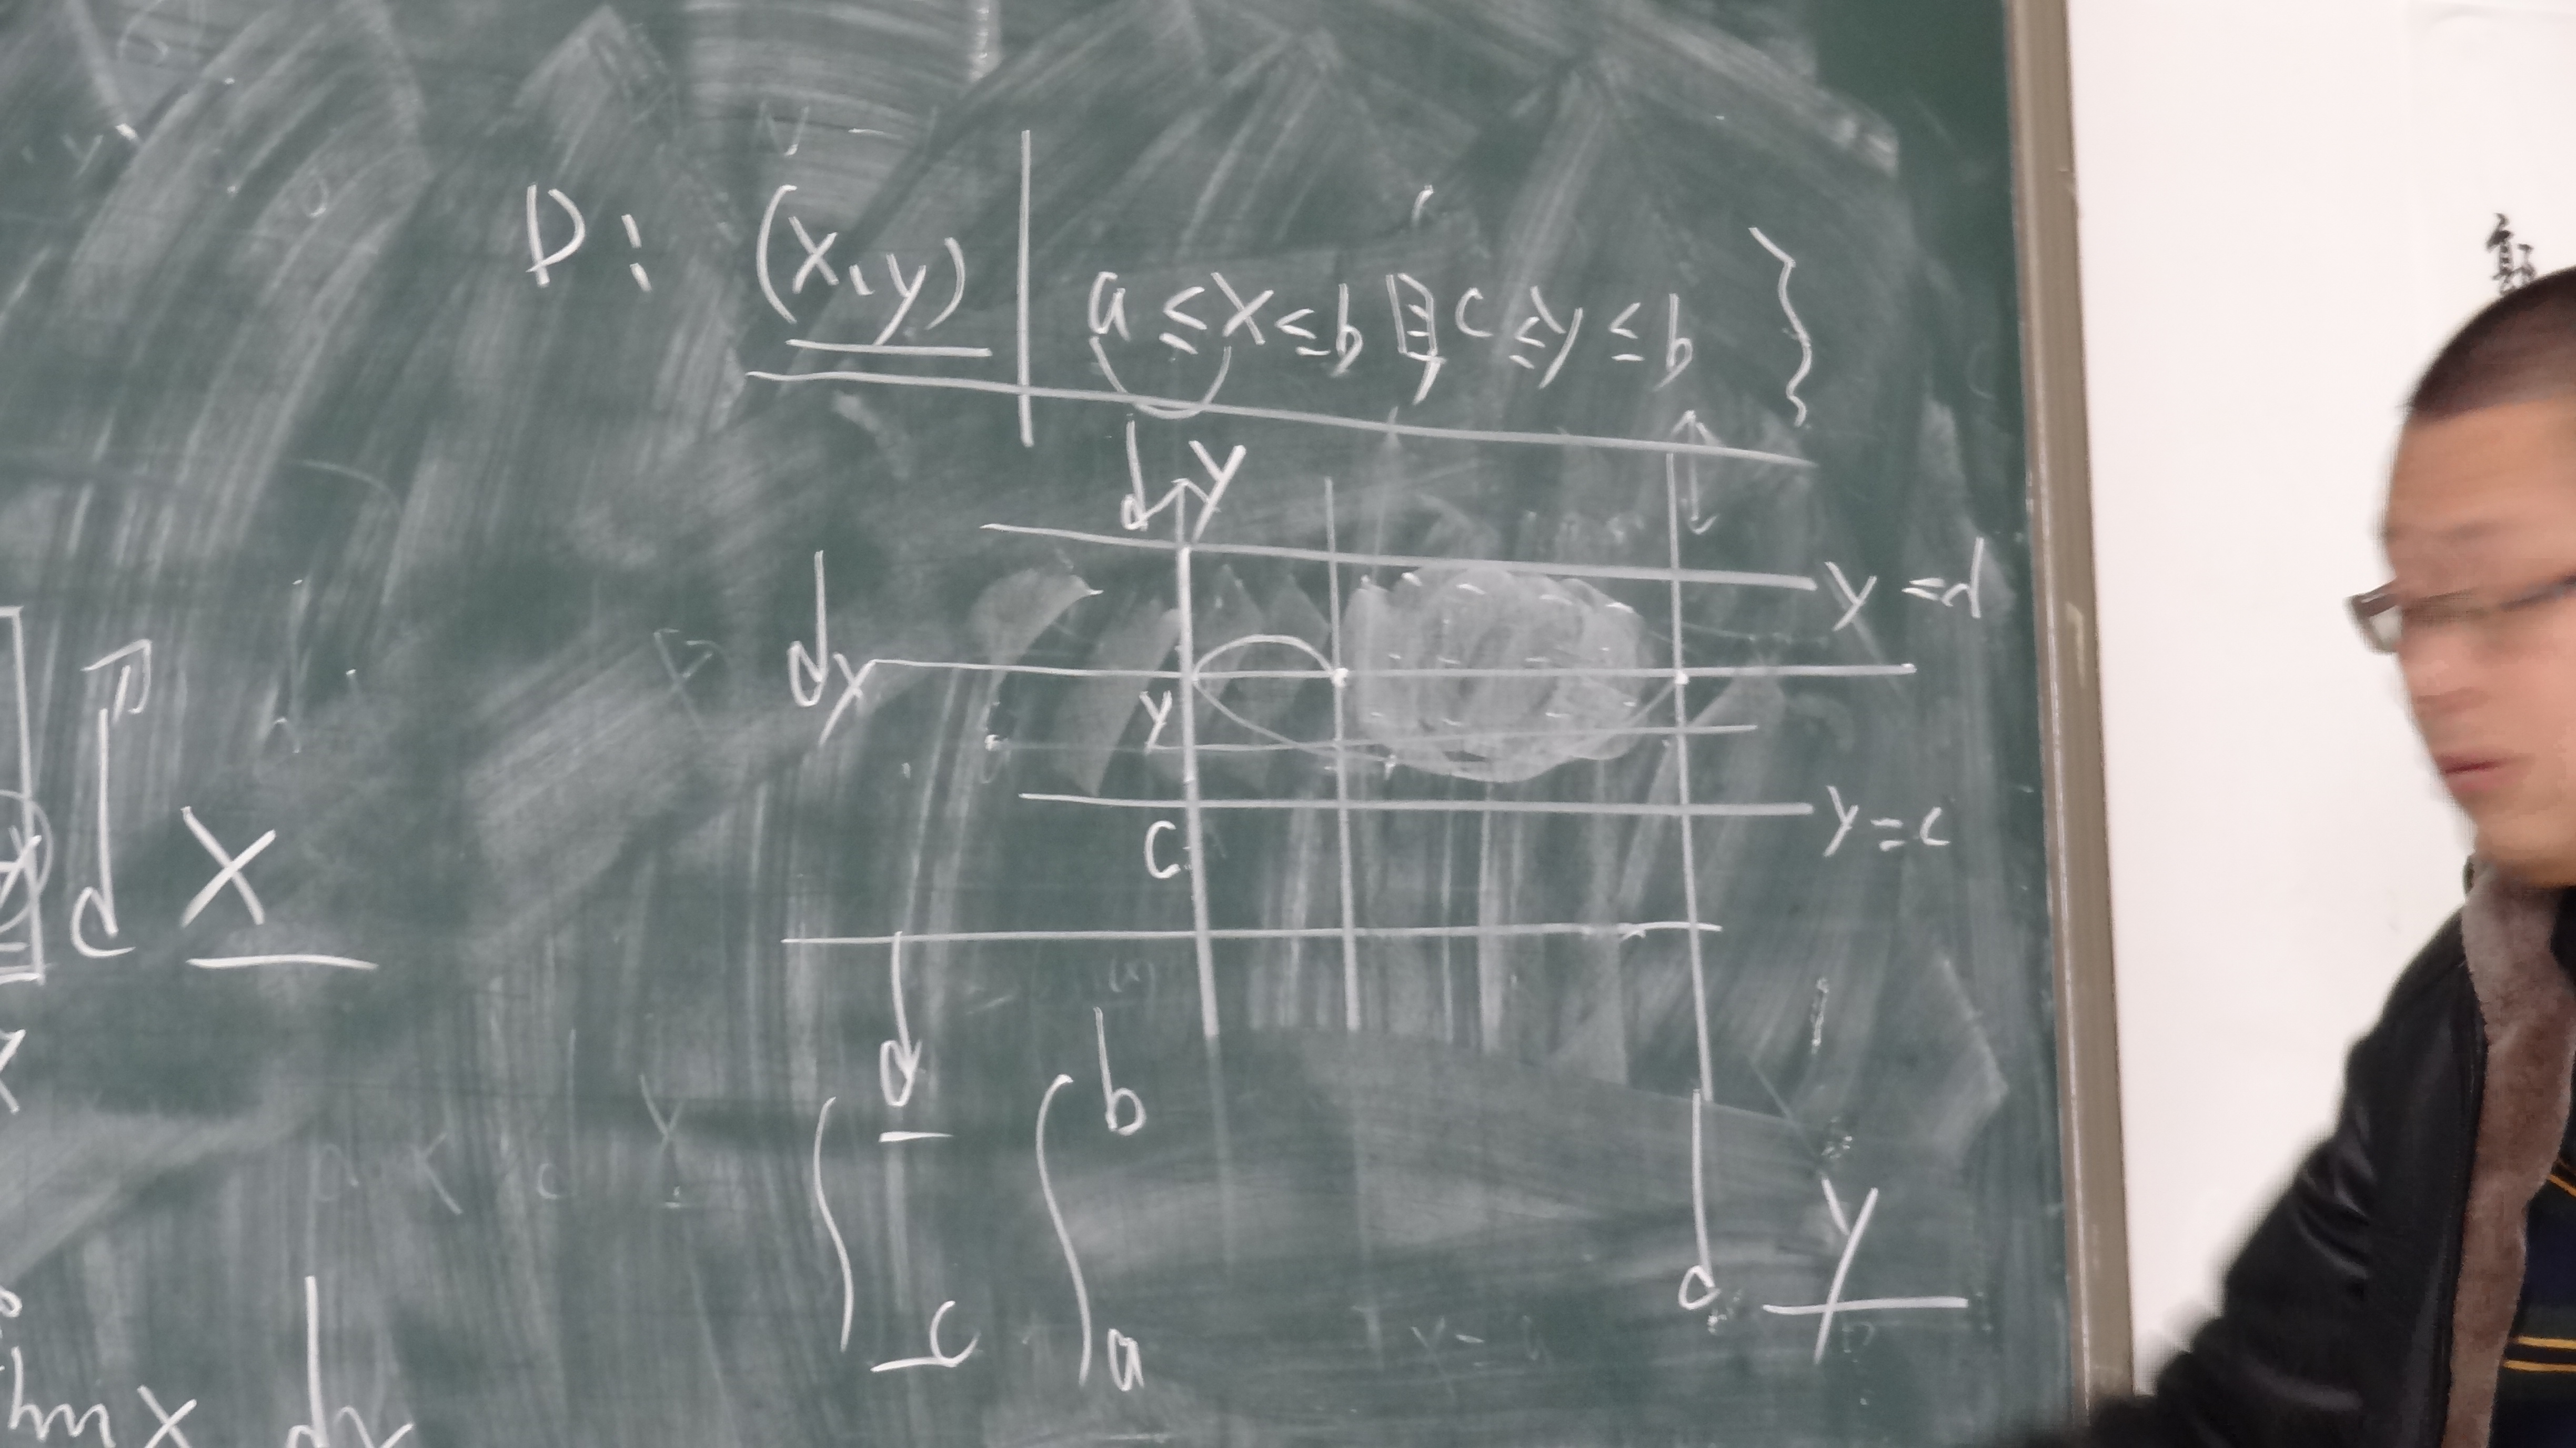 D: (x,y) | a ≤ x ≤ b 且 c ≤ y ≤ b }
d y
y = d
dx
y
y = c
c
d x
∫ d c ∫ b a d y
dx